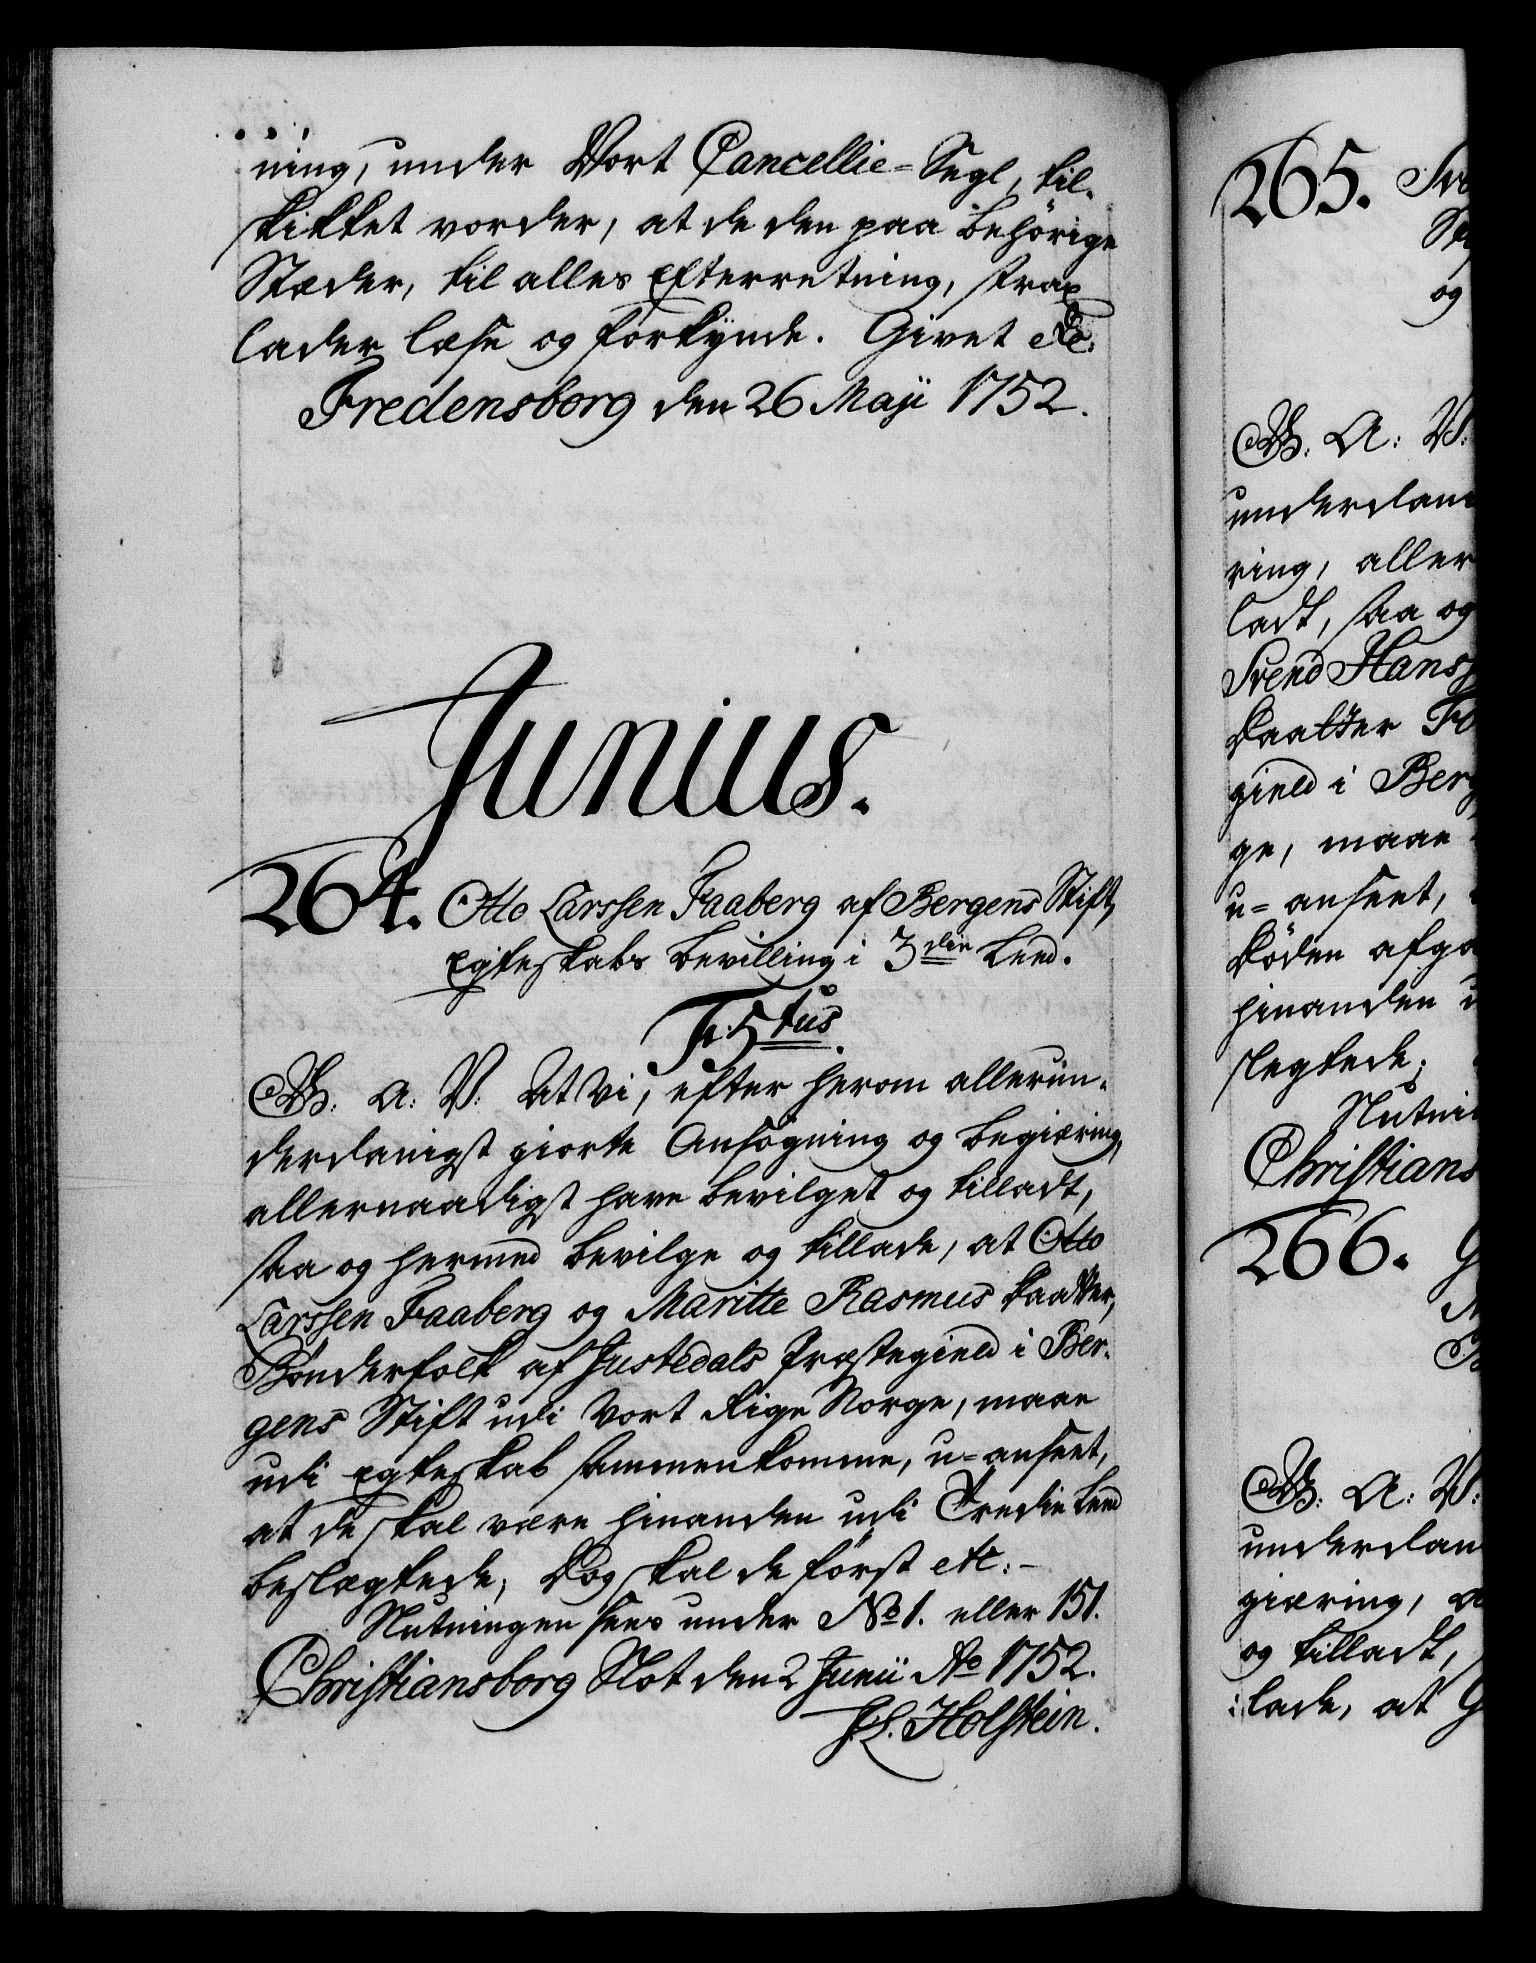 ning, under Vort Cancellie-Segl, til-
skikket vorder, at de den paa behörige
Stæder, til alles Efterretning, strax
lader læse og forkynde. Givet etc:
Fredensborg den 26 Maji 1752.
Junius.
264. Otto Larssen Faaberg af Bergens Stift,
Egteskabs bevilling i 3die Leed.
F: 5tus.
G. A: V: At Vi, efter herom allerun-
derdanigst giorte Ansøgning og begiæring,
allernaadigst have bevilget og tilladt,
saa og hermed bevilge og tillade, at Otto
Larssen Faaberg og Maritte Rasmus Daatter,
Bønderfolk af Justedals Præstegield i Ber-
gens Stift udi Vort Rige Norge, maae
udi Egteskab sammenkomme, u-anseet,
at de skal være hinanden udi Tredie Leed
beslægtede; Dog skal de först etc:-
Slutningen sees under No 1. eller 151.
Christiansborg Slot den 2 Junii Ao 1752.
J. L. Holstein.
265. Sve
og
G. A: V:
underdan
ring, aller
ladt, saa og
Svend Hans
Daatter
gield i Berg
ge, maae
u-anseet,
Döden afga
hinanden u
slegtede;
Slutni
Christians
266. G
G. A: V:
underdan
giæring, a
og tilladt,
lade, at G